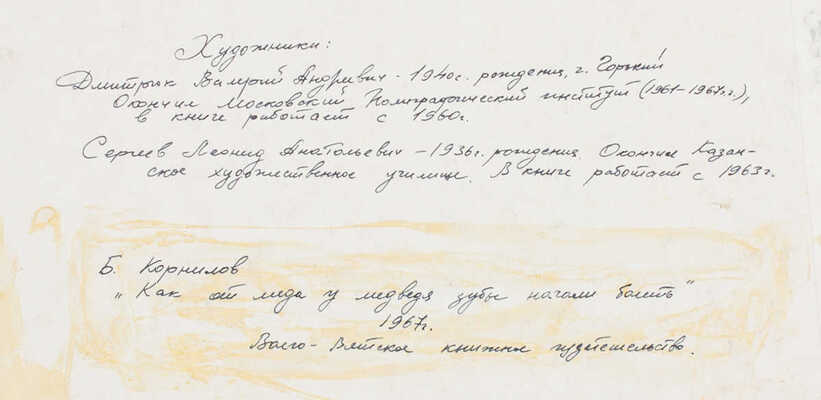 Художники:
Дмитрюк Валерий Андреевич - 1940г. рождения, г. Горький
Окончил Московский Полиграфический институт (1961-1967г.г.),
в книге работает с 1960г.
Сергеев Леонид Анатольевич - 1936г. рождения. Окончил Казан-
ское художественное училище. В книге работает с 1963г.
Б. Корнилов
„Как от меда у медведя зубы начали болеть"
1967г.
Волго-Вятское книжное издательство.